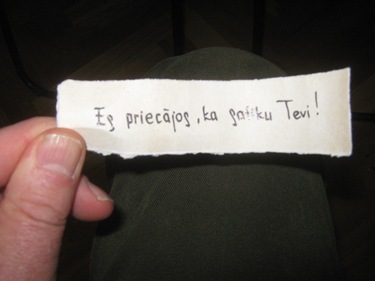 Es priecājos, ka satiku Tevi!